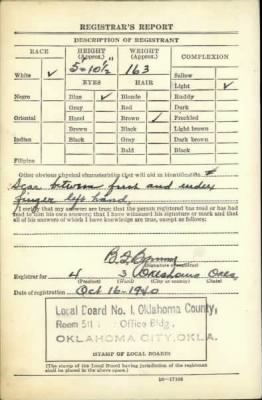 REGISTRAR'S REPORT
DESCRIPTION OF REGISTRANT
RACE HEIGHT (Approx.) WEIGHT (Approx.) COMPLEXION
5-10½ 163
White ✓ EYES HAIR Sallow
Light ✓
Negro Blue ✓ Blonde Ruddy
Gray Red Dark
Oriental Hazel Brown ✓ Freckled
Brown Black Light brown
Indian Black Gray Dark brown
Bald Black
Filipino
Other obvious physical characteristics that will aid in identification
Scar between first and index
finger left hand.
I certify that my answers are true; that the person registered has read or has had
read to him his own answers; that I have witnessed his signature or mark and that
all of his answers of which I have knowledge are true, except as follows:
(Signature of registrar)
Registrar for 4 3 Oklahoma Okla.
(Precinct) (Ward) (City or county) (State)
Date of registration Oct 16-1940
Local Board No. 1, Oklahoma County,
Room 511 Office Bldg.,
OKLAHOMA CITY, OKLA.
(STAMP OF LOCAL BOARD)
(The stamp of the Local Board having jurisdiction of the registrant
shall be placed in the above space.)